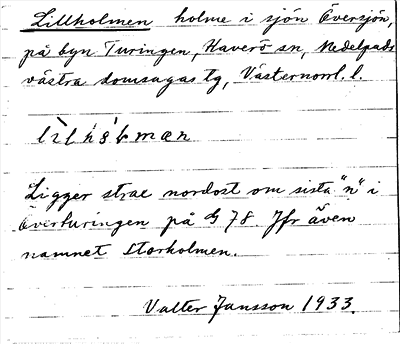 Lillholmen holme i sjön Översjön,
på byn Turingen, Haverö sn, Medelpads
västra domsagas tg, Västernorrl. l.
Ligger strax nordost om sista "n" i
Överturingen på G 78. Jfr även
namnet Storholmen.
Valter Jansson 1933.